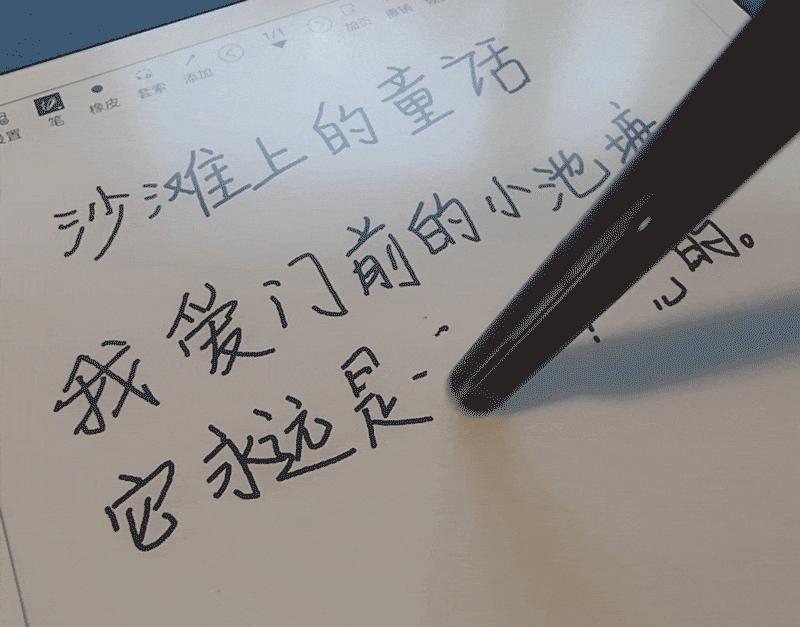 设置 笔 橡皮 套索 添加 1/1 加页 撤销
沙滩上的童话
我爱门前的小池塘
它永远是 的。